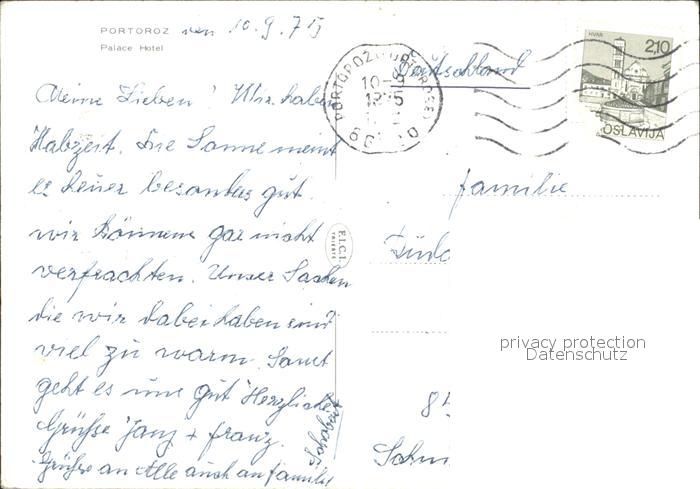 PORTOROZ den 10.9.75
Palace Hotel
Meine Lieben! Wir haben
Habzeit. Die Sonne meint
es heuer besonders gut.
wir können gar nicht
verfrachten. Unser Sachen
die wir dabei haben sind
viel zu warm. Sonst
geht es uns gut Herzliche
Grüße Janz + Franz.
Grüße an Alle auch an Familie
F.I.C.I.
TRIESTE
10-9
1975
Deutschland
HVAR
2,10
OSLAVIJA
Familie
privacy protection
Datenschutz